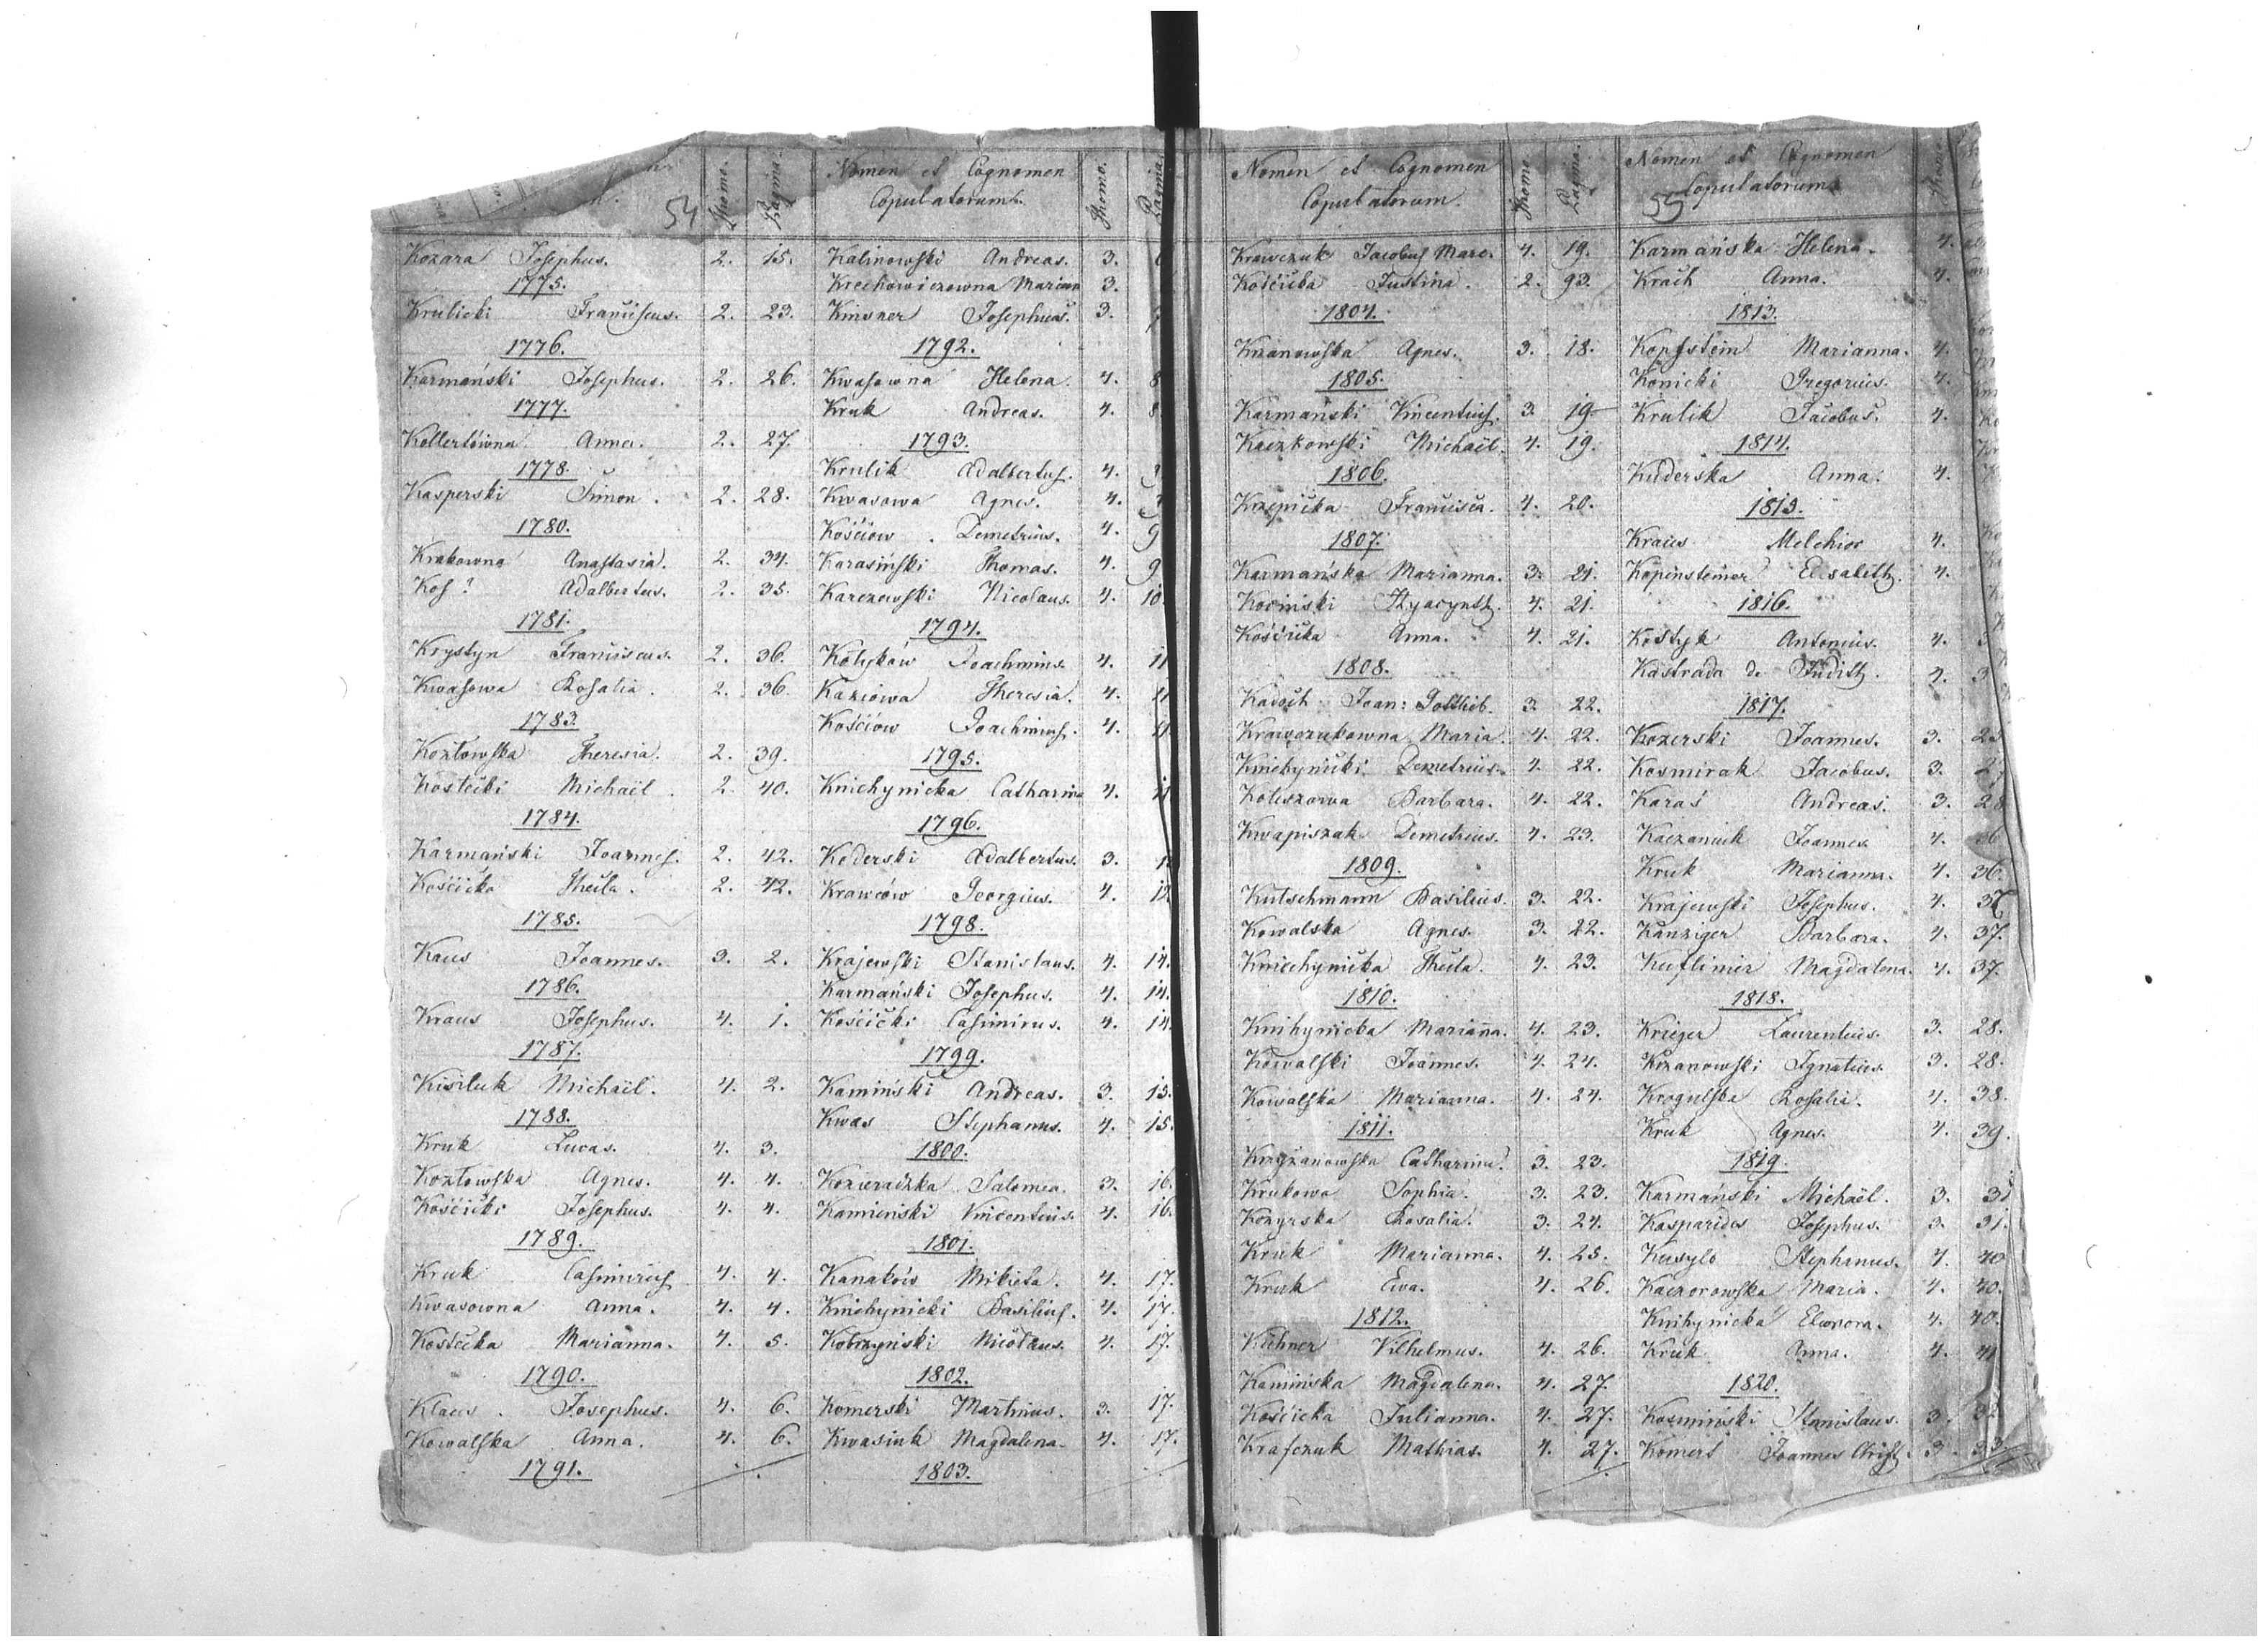 54
Thomo. Pagina.
Kozara Josephus. 2. 15.
1775.
Krulicki Franciscus. 2. 23.
1776.
Karmański Josephus. 2. 26.
1777.
Kollertówna Anna. 2. 27.
1778.
Kasperski Simon. 2. 28.
1780.
Krakowna Anastasia. 2. 34.
Kos? Adalbertus. 2. 35.
1781.
Krystyn Franciscus. 2. 36.
Kwasowa Rosalia. 2. 36.
1783.
Kozłowska Theresia. 2. 39.
Kościcki Michaël. 2. 40.
1784.
Karmański Joannes. 2. 42.
Kościcka Thecla. 2. 42.
1785.
Kaus Joannes. 3. 2.
1786.
Kraus Josephus. 4. 1.
1787.
Kisiluk Michaël. 4. 2.
1788.
Kruk Lucas. 4. 3.
Kozłowska Agnes. 4. 4.
Kościcki Josephus. 4. 4.
1789.
Kruk Casimirus 4. 4.
Kwasowna Anna. 4. 4.
Kościcka Marianna. 4. 5.
1790.
Klaus Josephus. 4. 6.
Kowalska Anna. 4. 6.
1791.
Nomen et Cognomen Copulatorum. Thomo. Pagina.
Kalinowski Andreas. 3.
Krechowiczowna Marianna 3.
Kinsner Josephus. 3.
1792.
Kwasowna Helena. 4. 8
Kruk Andreas. 4. 8
1793.
Krulik Adalbertus. 4. 9
Kwasowa Agnes. 4.
Kościow Demetrius. 4. 9
Karasiński Thomas. 4. 9
Karczewski Nicolaus. 4. 10.
1794.
Kołyków Joachmius. 4. 11
Kaziowa Theresia. 4. 11
Kościow Joachimus. 4. 11
1795.
Knichynicka Catharina 4. 11
1796.
Kederski Adalbertus. 3.
Krawców Georgius. 4. 12
1798.
Krajewski Stanislaus. 4. 14.
Karmański Josephus. 4. 14.
Kościcki Casimirus. 4. 14.
1799.
Kamiński Andreas. 3. 15.
Kwas Stephanus. 4. 15.
1800.
Kozieradzka Salomea. 3. 16.
Kamieński Vincentius. 4. 16.
1801.
Kanaków Mikieta. 4. 17.
Knichynicki Basilius. 4. 17.
Kobrzyński Nicolaus. 4. 17.
1802.
Komerski Martinus. 3. 17.
Kwasiuk Magdalena. 4. 17.
1803.
Nomen et Cognomen Copulatorum. Thomo. Pagina.
Krawczuk Jacobus Marc. 4. 19.
Kościcka Justina. 2. 93.
1804.
Krzanowska Agnes. 3. 18.
1805.
Karmański Vincentius. 3. 19
Kaczkowski Michaël. 4. 19.
1806.
Krzepicka Francisca. 4. 20.
1807.
Karmańska Marianna. 3. 21.
Kociński Hyacynth. 4. 21.
Kościcka Anna. 4. 21.
1808.
Kadoch Joan: Gottlieb. 3. 22.
Krawczukowna Maria. 4. 22.
Kniehynicki Demetrius. 4. 22.
Koliszowa Barbara. 4. 22.
Kwapiszak Demetrius. 4. 23.
1809.
Kutschmann Basilius. 3. 22.
Kowalska Agnes. 3. 22.
Kniechynicka Thecla. 4. 23.
1810.
Knihynicka Marianna. 4. 23.
Kowalski Joannes. 4. 24.
Kowalska Marianna. 4. 24.
1811.
Krzyżanowska Catharina. 3. 23.
Krukowa Sophia. 3. 23.
Kozyrska Rosalia. 3. 24.
Kruk Marianna. 4. 25.
Kruk Ewa. 4. 26.
1812.
Kühner Vilhelmus. 4. 26.
Kamińska Magdalena. 4. 27.
Kościcka Julianna. 4. 27.
Krafczuk Mathias. 4. 27.
Nomen et Cognomen Copulatorum. Thomo.
55
Karmańska Helena. 4.
Krach Anna. 4.
1813.
Kopfstein Marianna. 4.
Konicki Gregorius. 4.
Krulik Jacobus. 4.
1814.
Kuderska Anna. 4.
1815.
Kraus Melchior 4.
Kopensteiner Elisabeth. 4.
1816.
Kostyk Antonius. 4. 3
Kastrada de Judith. 4. 3
1817.
Kozerski Joannes. 3.
Kosmirak Jacobus. 3.
Karaś Andreas. 3. 28
Kaczaniuk Joannes. 4. 36
Kruk Marianna. 4. 36.
Krajewski Josephus. 4. 37
Känziger Barbara. 4. 37.
Kuflinier Magdalena. 4. 37.
1818.
Krieger Laurentius. 3. 28.
Krzanowski Ignatius. 3. 28.
Krogulska Rosalia. 4. 38.
Kruk Agnes. 4. 39.
1819.
Karmański Michaël. 3. 31
Kasparides Josephus. 3. 31.
Kusylo Stephanus. 4. 40
Kaczorowska Maria. 4. 40.
Knihynicka Eleonora. 4. 40.
Kruk Anna. 4. 41
1820.
Kozmiński Stanislaus. 3. 32
Komers Joannes Christ. 3. 33